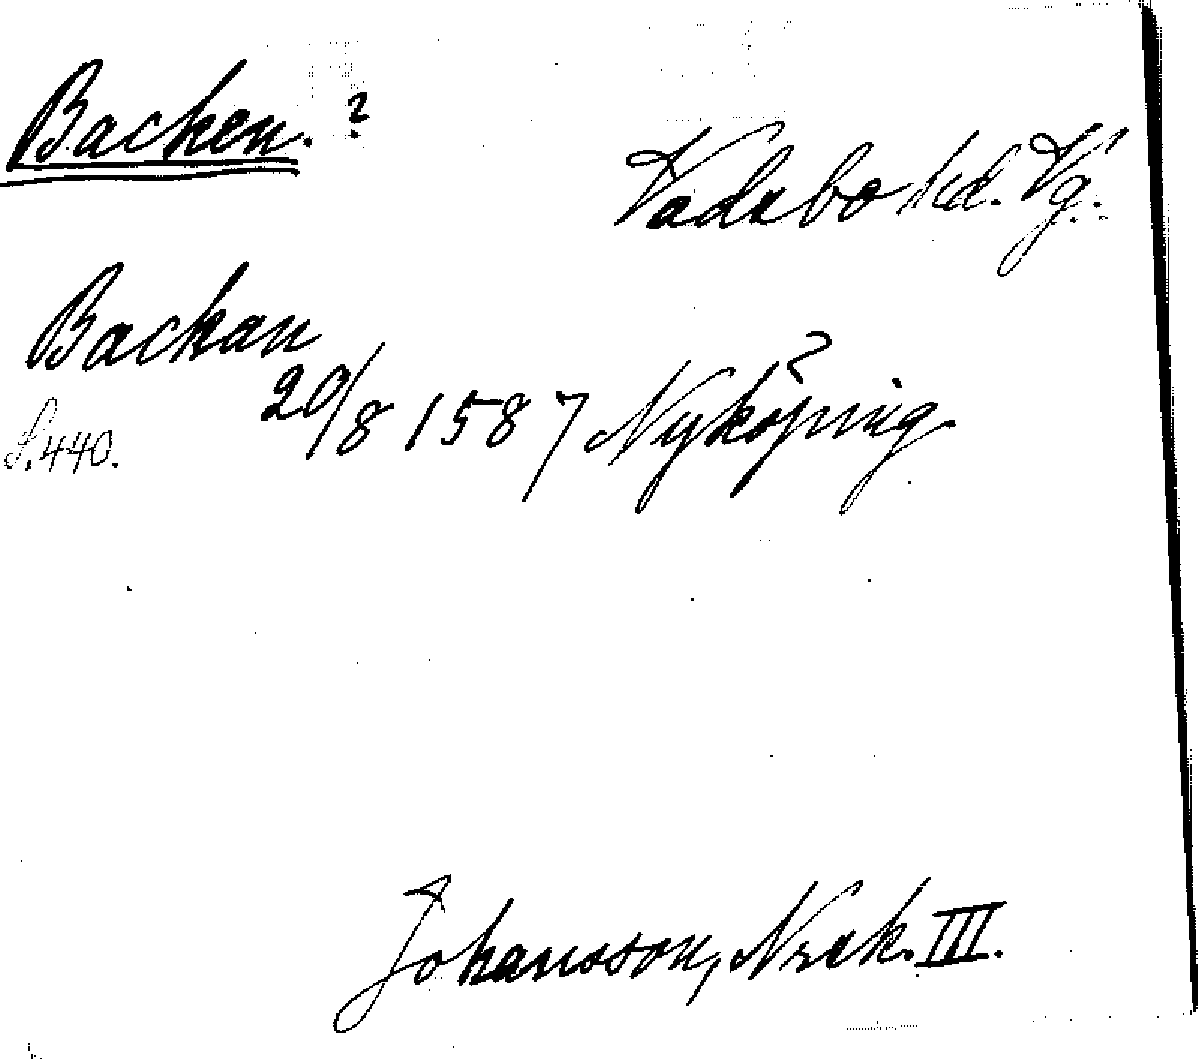 Backen. ?
Vadsbo hd. Vg.
Backan
20/8 1587 Nyköping
S. 440.
Johansson, Nrek. III.